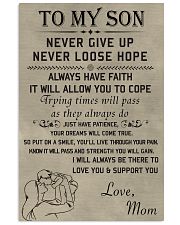 TO MY SON
NEVER GIVE UP
NEVER LOOSE HOPE
ALWAYS HAVE FAITH
IT WILL ALLOW YOU TO COPE
Trying times will pass
as they always do
JUST HAVE PATIENCE,
YOUR DREAMS WILL COME TRUE.
SO PUT ON A SMILE, YOU'LL LIVE THROUGH YOUR PAIN,
KNOW IT WILL PASS AND STRENGTH YOU WILL GAIN.
I WILL ALWAYS BE THERE TO
LOVE YOU & SUPPORT YOU
Love,
Mom